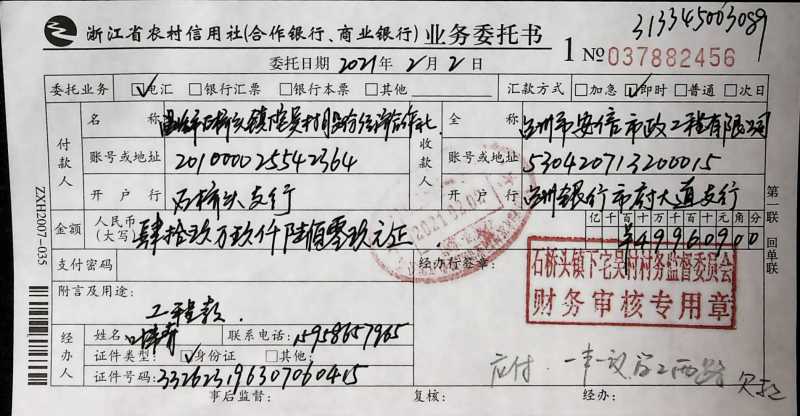 313345003089
浙江省农村信用社(合作银行、商业银行)业务委托书
委托日期 2021年 2月 2日
1 No 037882456
委托业务 电汇 银行汇票 银行本票 其他
汇款方式 加急 即时 普通 次日
付款人
名称 温岭市石桥头镇下宅吴村股份经济合作社
账号或地址 201000025542364
开户行 石桥头支行
收款人
全称 台州市安信市政工程有限公司
账号或地址 530420713200015
开户行 台州银行市府大道支行
金额 人民币(大写) 肆拾玖万玖仟陆佰零玖元正
亿千百十万千百十元角分
¥49960900
支付密码
经办行签章:
2021.02.02
附言及用途:
工程款
石桥头镇下宅吴村村务监督委员会
财务审核专用章
经办人
姓名
联系电话: 15958657965
证件类型: 身份证 其他:
证件号码: 332623196307060415
应付 一事一议
事后监督: 复核: 经办:
第一联 回单联
ZXH2007-035